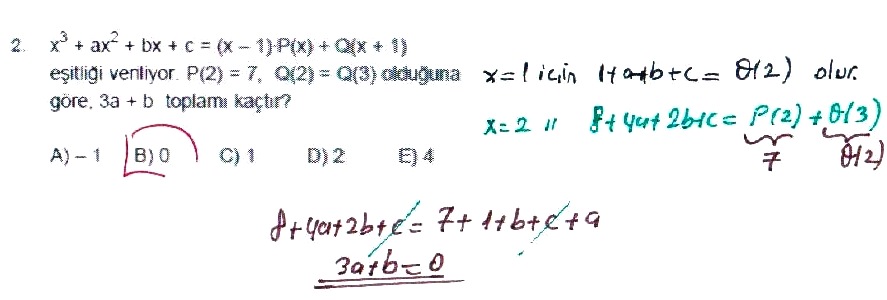 2. x³ + ax² + bx + c = (x – 1)·P(x) + Q(x + 1)
eşitliği veriliyor. P(2) = 7, Q(2) = Q(3) olduğuna
göre, 3a + b toplamı kaçtır?
A) – 1 B) 0 C) 1 D) 2 E) 4
x=1 için 1+a+b+c = Q(2) olur.
x=2 " 8+4a+2b+c = P(2) + Q(3)
7 Q(2)
8+4a+2b+c = 7+1+b+c+a
3a+b=0